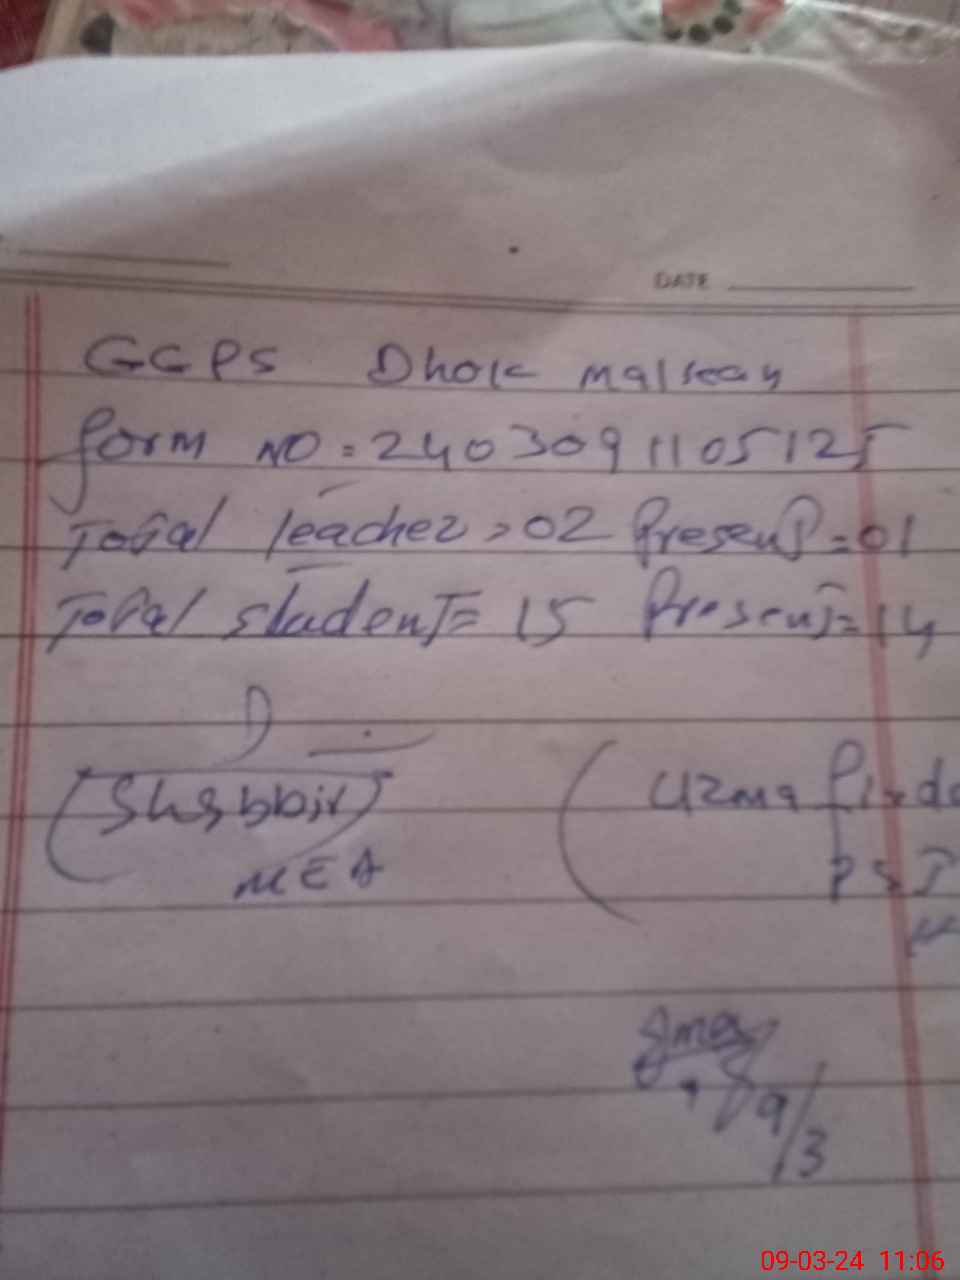 DATE
GGPS Dhok
form NO = 2403091105125
Total teacher = 02 Present = 01
Total student = 15 Present = 14
(Shabbir)
MEA
(Uzma
PST
9/3
09-03-24 11:06